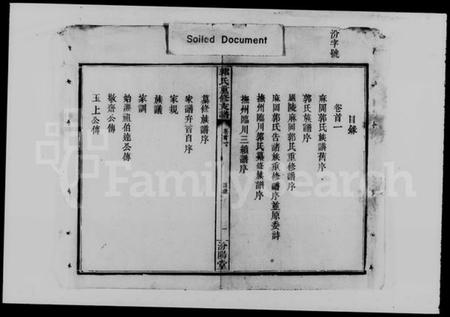 Soiled Document
汾字號
目錄
卷首一
麻岡郭氏族譜舊序
郭氏族譜序
廬陵麻岡郭氏重修譜序
麻岡郭氏告諸族重修譜序並原委詩
撫州臨川郭氏纂修族譜序
撫州臨川三續譜序
郭氏重修支譜
卷首
目錄
一
汾陽堂
纂修族譜序
家譜弁首自序
家規
族議
家訓
始遷祖伯達公傳
敬齋公傳
玉上公傳
FamilySearch